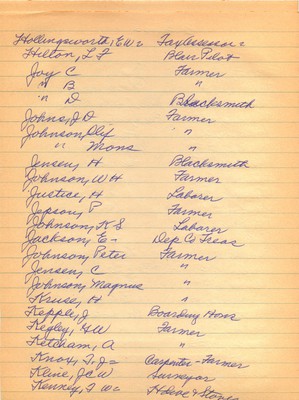 Hollingsworth, E W = Tax Assessor =
Hilton, L F Blair Pilot
Joy C Farmer
" B "
" D Blacksmith
Johns, J D Farmer
Johnson, Olif "
" Mons "
Jensen, H Blacksmith
Johnson, W H Farmer
Justice, H Laborer
Jepson, P Farmer
Johnson, K S Laborer
Jackson, E - Dep Co Treas
Johnson, Peter Farmer
Jensen, C "
Johnson, Magnus "
Kruse, H "
Kepple, J Boarding Hous
Kegley, H W Farmer
Ketcham, A "
Knox, T. J = Carpenter - Farmer
Kline, J C W Surveyor
Kenney, F W = & Stoves